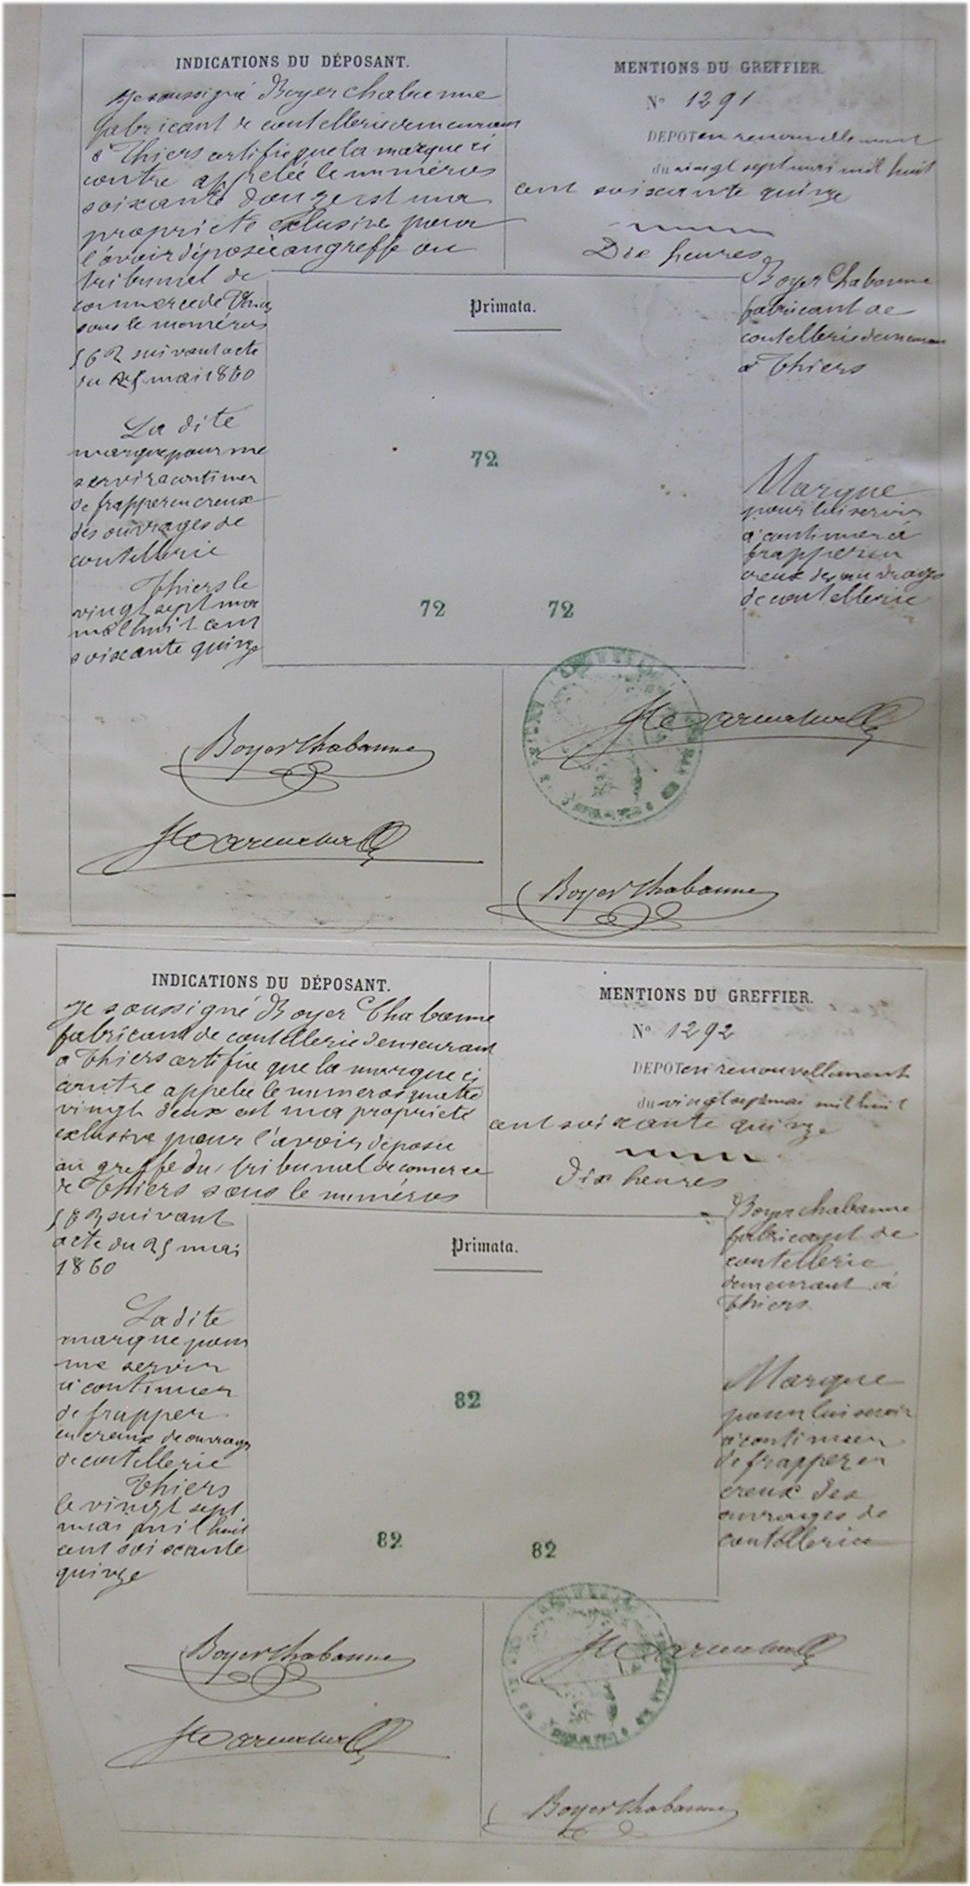 INDICATIONS DU DÉPOSANT.
Je soussigné Boyer Chabanne
fabricant de coutellerie demeurant
à Thiers certifie que la marque ci
contre appelée le numéros
soixante douze est ma
propriete exclusive pour
l'avoir déposée au greffe du
tribunal de
commerce de Thiers
sous le numéros
562 suivant acte
du 25 mai 1860
La dite
marque pour me
servir a continuer
de frapper en creux
des ouvrages de
coutellerie
Thiers le
vingt sept mai
mil huit cent
soixante quinze
Boyer Chabanne
MENTIONS DU GREFFIER.
N° 1291
DEPOT en renouvellement
du vingt sept mai mil huit
cent soixante quinze
Dix heures
Boyer Chabanne
fabricant de
coutellerie demeurant
à Thiers
Marque
pour lui servir
a continuer à
frapper en
creux des ouvrages
de coutellerie
Primata.
72
72 72
Boyer Chabanne
INDICATIONS DU DÉPOSANT.
Je soussigné Boyer Chabanne
fabricant de coutellerie demeurant
à Thiers certifie que la marque ci
contre appelée le numeros quatre
vingt deux est ma propriété
exclusive pour l'avoir déposée
au greffe du tribunal de comerce
de Thiers sous le numéros
suivant
acte du 25 mai
1860
La dite
marque pour
me servir
a continuer
de frapper
en creux de ouvrages
de coutellerie
Thiers
le vingt sept
mai mil huit
cent soixante
quinze
Boyer Chabanne
MENTIONS DU GREFFIER.
N° 1292
DEPOT en renouvellement
du vingt sept mai mil huit
cent soixante quinze
Dix heures
Boyer Chabanne
fabricant de
coutellerie
demeurant à
Thiers
Marque
pour lui servir
a continuer
de frapper en
creux des
ouvrages de
coutellerie
Primata.
82
82 82
Boyer Chabanne